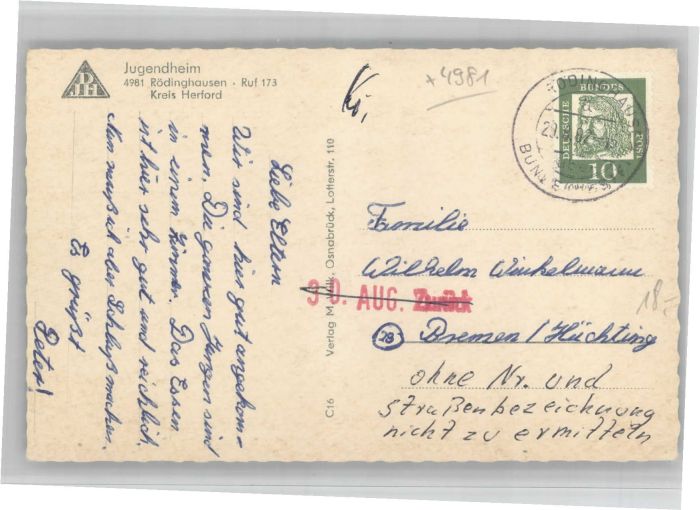 DJH
Jugendheim
4981 Rödinghausen · Ruf 173
Kreis Herford
+4981
DEUTSCHE BUNDESPOST
10
Liebe Eltern
Wir sind hier gut angekom-
men. Die ganzen Jungen sind
in einem Zimmer. Das Essen
ist hier sehr gut und reichlich.
Nun muß ich aber Schluß machen.
Es grüßt
Peter!
Osnabrück, Lotterstr. 110
Verlag
C16
Familie
Wilhelm Winkelmann
30. AUG. Zurück
18=
Bremen / Hüchting
ohne Nr. und
Straßenbezeichnung
nicht zu ermitteln